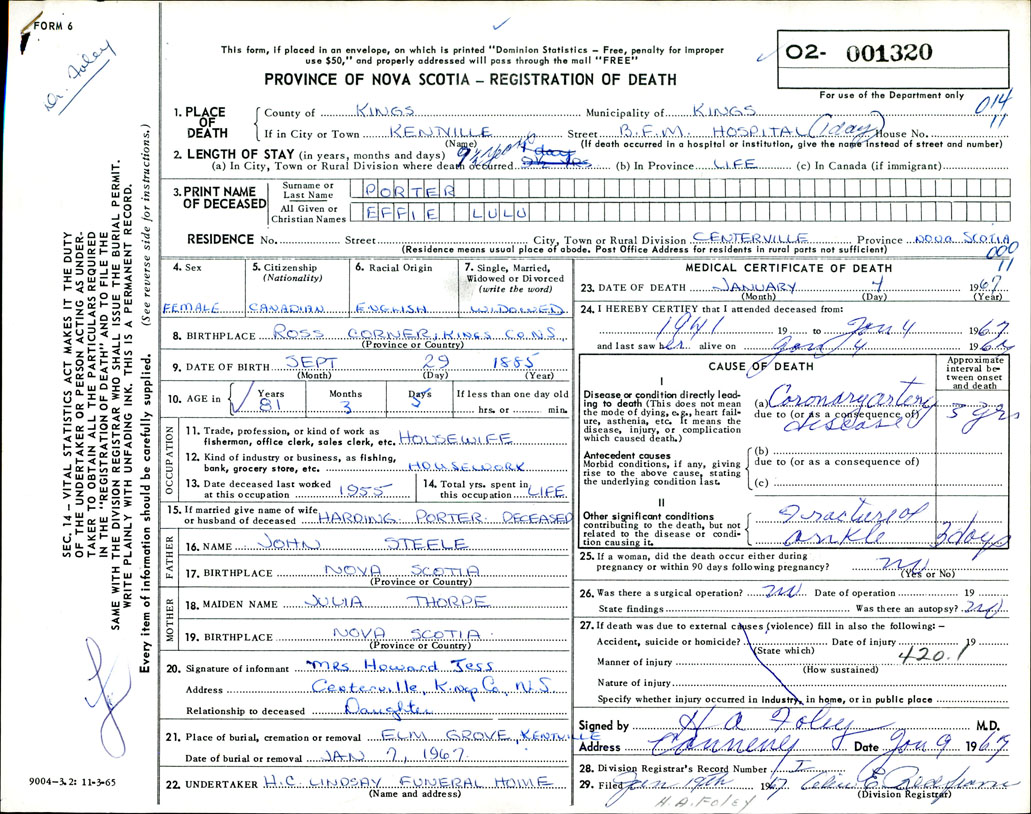 FORM 6
Dr. Foley
This form, if placed in an envelope, on which is printed "Dominion Statistics – Free, penalty for improper
use $50," and properly addressed will pass through the mail "FREE"
PROVINCE OF NOVA SCOTIA – REGISTRATION OF DEATH
02- 001320
For use of the Department only
014
11
SEC. 14 – VITAL STATISTICS ACT MAKES IT THE DUTY
OF THE UNDERTAKER OR PERSON ACTING AS UNDER-
TAKER TO OBTAIN ALL THE PARTICULARS REQUIRED
IN THE "REGISTRATION OF DEATH" AND TO FILE THE
SAME WITH THE DIVISION REGISTRAR WHO SHALL ISSUE THE BURIAL PERMIT.
WRITE PLAINLY WITH UNFADING INK. THIS IS A PERMANENT RECORD.
Every item of information should be carefully supplied. (See reverse side for instructions.)
1. PLACE OF DEATH
County of KINGS Municipality of KINGS
If in City or Town KENTVILLE Street B.F.M. HOSPITAL (1 day) House No.
(Name) (If death occurred in a hospital or institution, give the name instead of street and number)
2. LENGTH OF STAY (in years, months and days)
(a) In City, Town or Rural Division where death occurred 1 day (b) In Province LIFE (c) In Canada (if immigrant)
3. PRINT NAME OF DECEASED
Surname or Last Name PORTER
All Given or Christian Names EFFIE LULU
RESIDENCE No. Street City, Town or Rural Division CENTERVILLE Province NOVA SCOTIA
(Residence means usual place of abode. Post Office Address for residents in rural parts not sufficient)
000
11
4. Sex FEMALE
5. Citizenship (Nationality) CANADIAN
6. Racial Origin ENGLISH
7. Single, Married, Widowed or Divorced (write the word) WIDOWED
8. BIRTHPLACE ROSS CORNER, KINGS CO. NS
(Province or Country)
9. DATE OF BIRTH SEPT 29 1885
(Month) (Day) (Year)
10. AGE in Years Months Days If less than one day old
81 3 5 hrs. or min.
OCCUPATION
11. Trade, profession, or kind of work as
fisherman, office clerk, sales clerk, etc. HOUSEWIFE
12. Kind of industry or business, as fishing,
bank, grocery store, etc. HOUSEWORK
13. Date deceased last worked at this occupation 1955
14. Total yrs. spent in this occupation LIFE
15. If married give name of wife
or husband of deceased HARDING PORTER DECEASED
FATHER
16. NAME JOHN STEELE
17. BIRTHPLACE NOVA SCOTIA
(Province or Country)
MOTHER
18. MAIDEN NAME JULIA THORPE
19. BIRTHPLACE NOVA SCOTIA
(Province or Country)
20. Signature of informant Mrs Howard Jess
Address Centerville, Kings Co, N.S
Relationship to deceased Daughter
21. Place of burial, cremation or removal ELM GROVE, KENTVILLE
Date of burial or removal JAN 7, 1967.
22. UNDERTAKER H.C. LINDSAY FUNERAL HOME
(Name and address)
9004-3.2: 11-3-65
MEDICAL CERTIFICATE OF DEATH
23. DATE OF DEATH JANUARY 4 1967
(Month) (Day) (Year)
24. I HEREBY CERTIFY that I attended deceased from:
1941 19 to Jan 4 1967
and last saw her alive on Jan 4 1967
CAUSE OF DEATH
Approximate interval between onset and death
I
Disease or condition directly leading to death (This does not mean the mode of dying, e.g., heart failure, asthenia, etc. It means the disease, injury, or complication which caused death.)
(a) Coronary artery
due to (or as a consequence of)
disease
3 yrs
Antecedent causes
Morbid conditions, if any, giving rise to the above cause, stating the underlying condition last.
(b)
due to (or as a consequence of)
(c)
II
Other significant conditions
contributing to the death, but not related to the disease or condition causing it.
Fracture of
ankle 3 days
25. If a woman, did the death occur either during
pregnancy or within 90 days following pregnancy? no
(Yes or No)
26. Was there a surgical operation? no Date of operation 19
State findings Was there an autopsy? no
27. If death was due to external causes (violence) fill in also the following: –
Accident, suicide or homicide? Date of injury 19
(State which) 420.1
Manner of injury
(How sustained)
Nature of injury
Specify whether injury occurred in industry, in home, or in public place
Signed by H A Foley M.D.
Address Date Jan 9 1967
28. Division Registrar's Record Number 1
29. Filed Jan 19th 1967
(Division Registrar)
H.A. FOLEY